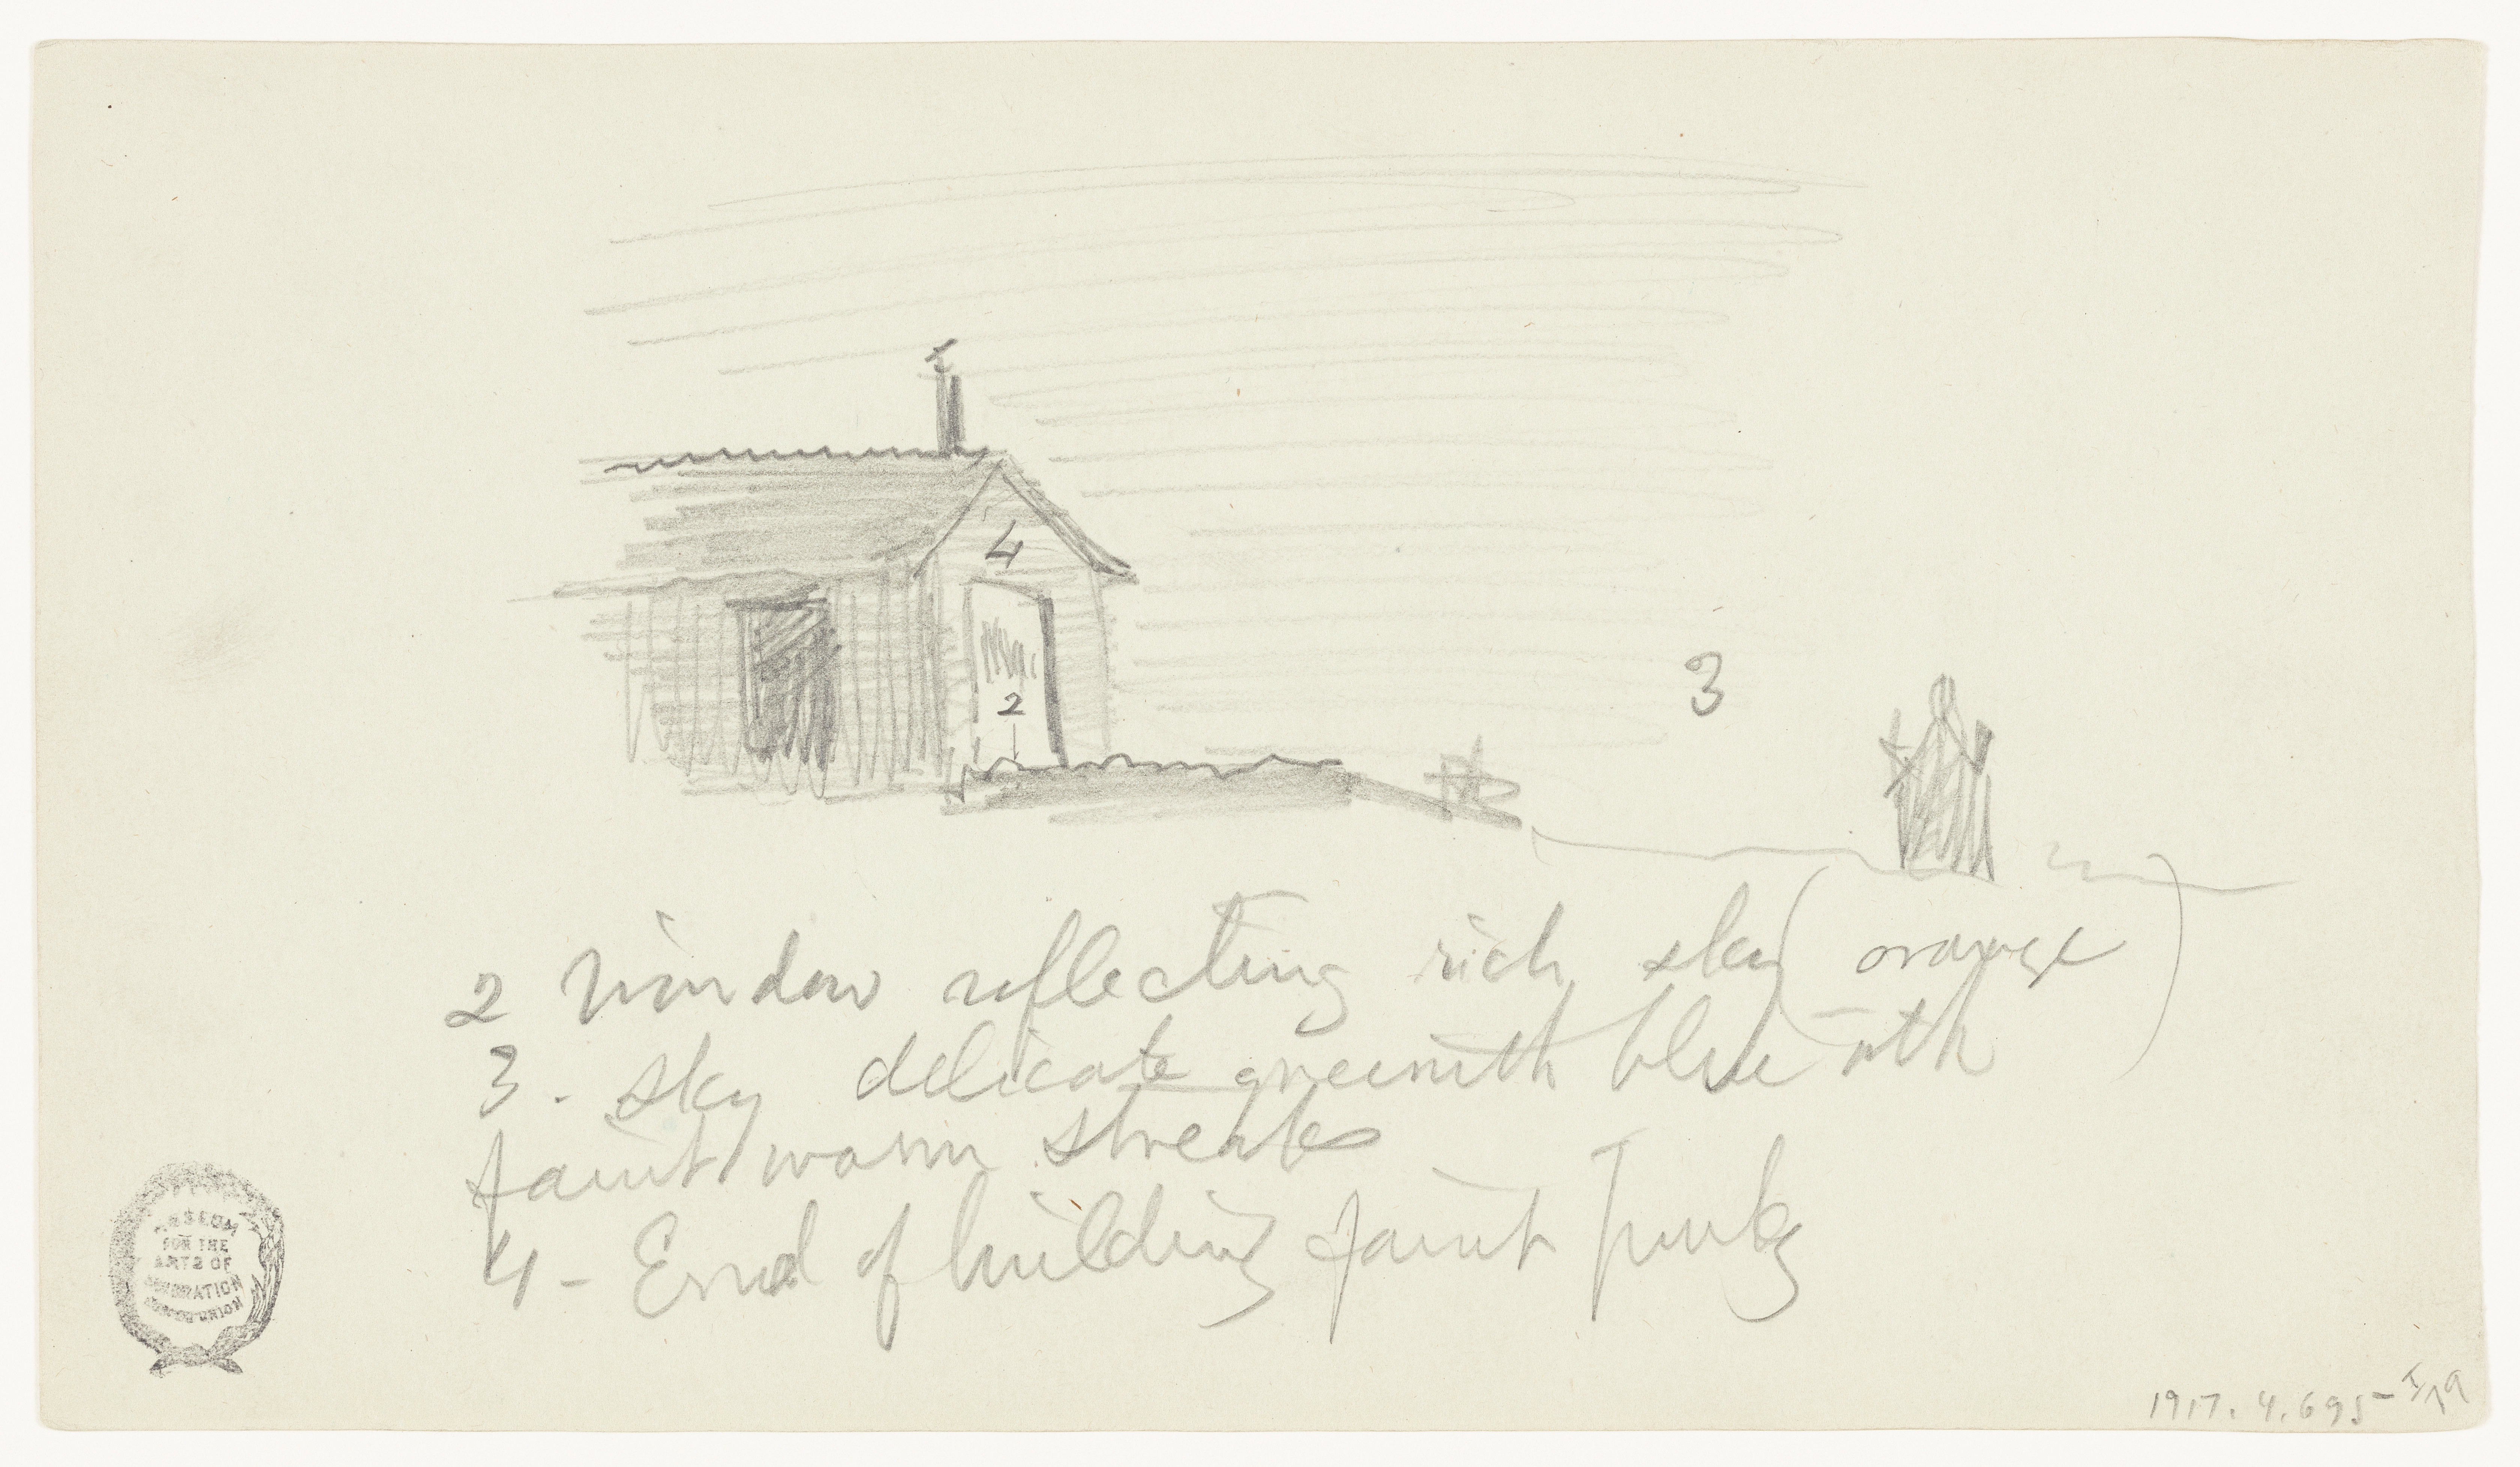 4
2
3
2 Window reflecting rich sky (orange)
3. sky delicate greenish blue with
faint warm streaks
4 - End of building faint Pink
MUSEUM
FOR THE
ARTS OF
DECORATION
COOPER UNION
1917.4.695-